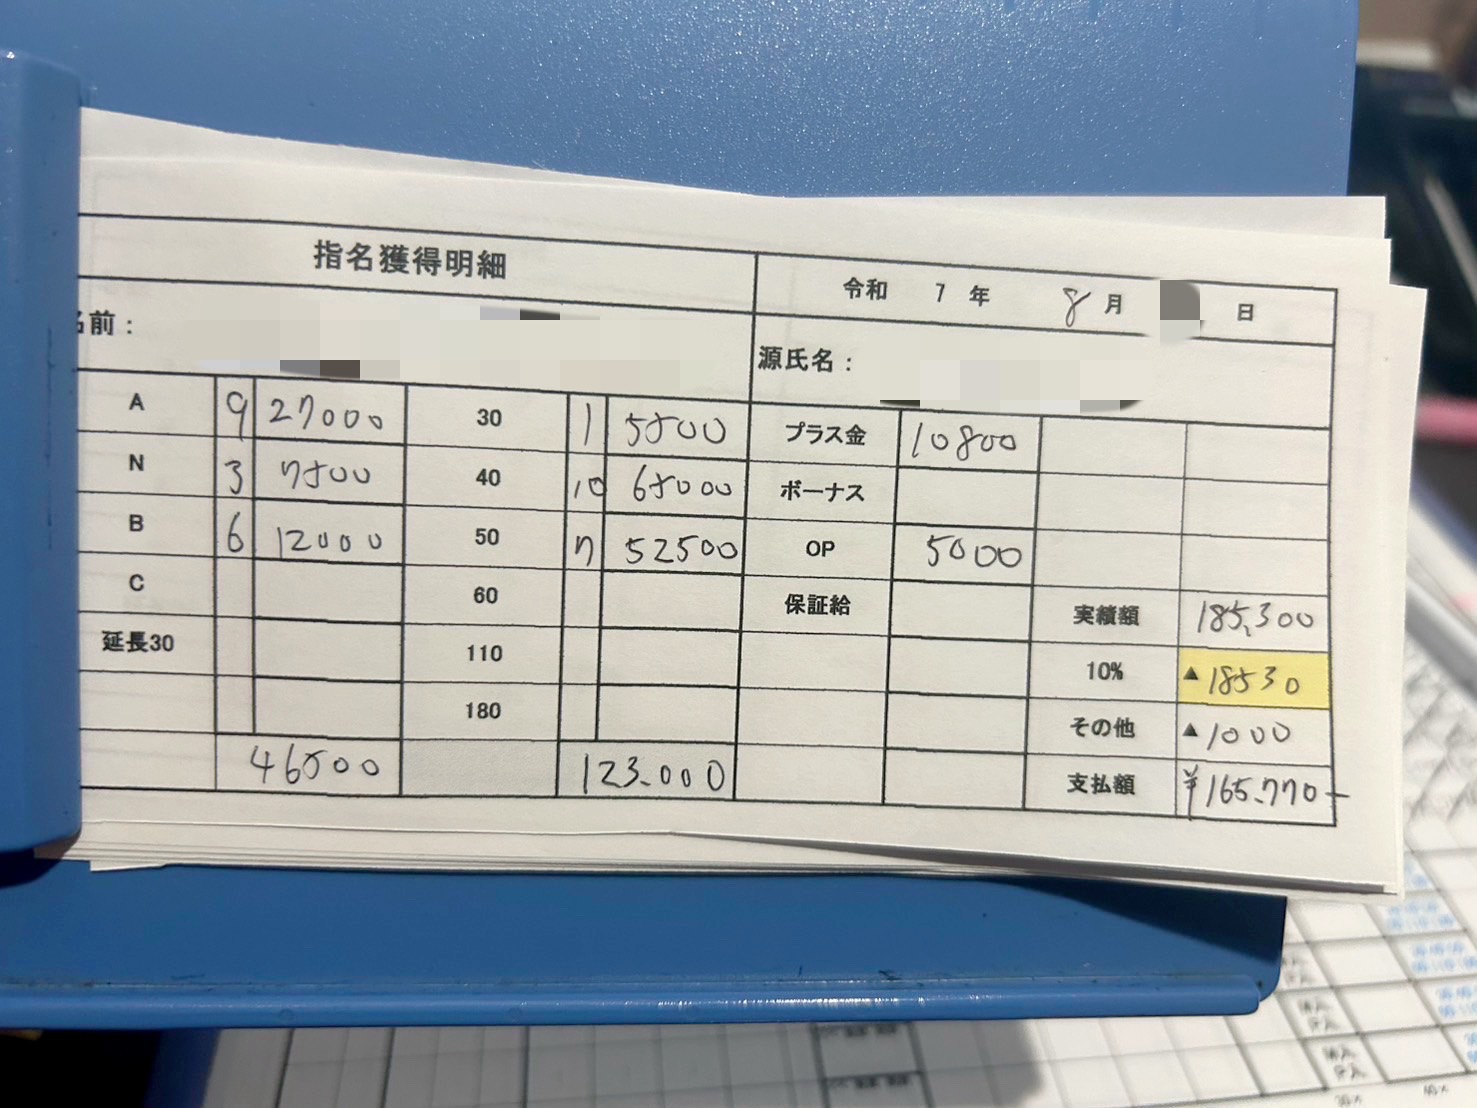 指名獲得明細 令和 7 年 8 月 日
名前： 源氏名：
A 9 27000 30 1 5500 プラス金 10800
N 3 7500 40 10 65000 ボーナス
B 6 12000 50 7 52500 OP 5000
C 60 保証給 実績額 185,300
延長30 110 10% ▲18530
180 その他 ▲1000
46500 123.000 支払額 ¥165.770-